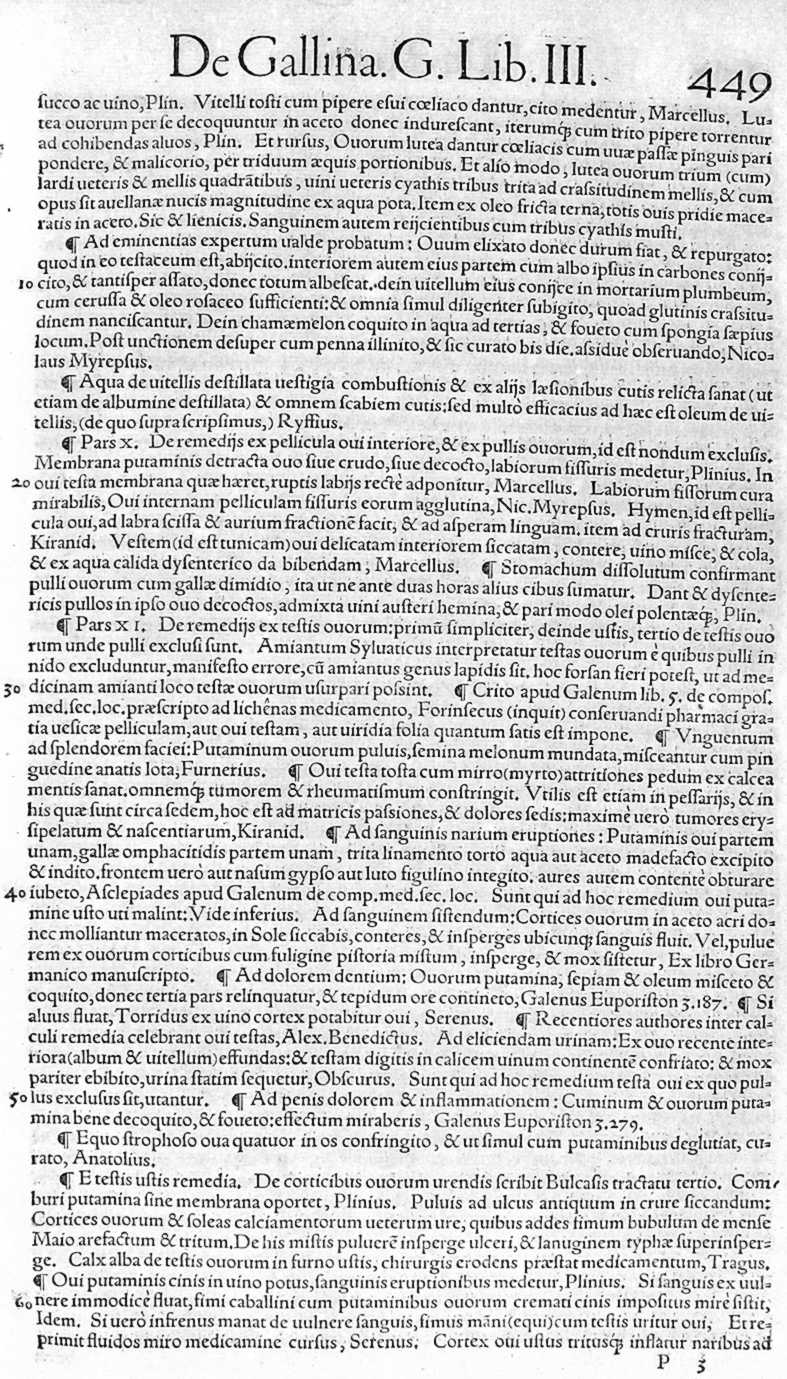 De Gallina. G. Lib. III. 449
succo ac uino, Plin. Vitelli tosti cum pipere esui cœliaco dantur, cito medentur, Marcellus. Lu-
tea ouorum per se decoquuntur in aceto donec indurescant, iterumq́; cum trito pipere torrentur
ad cohibendas aluos, Plin. Et rursus, Ouorum lutea dantur cœliacis cum uuæ passæ pinguis pari
pondere, & malicorio, per triduum æquis portionibus. Et alio modo, lutea ouorum trium (cum)
lardi ueteris & mellis quadrãtibus, uini ueteris cyathis tribus trita ad crassitudinem mellis, & cum
opus sit auellanæ nucis magnitudine ex aqua pota. Item ex oleo fricta terna, totis ouis pridie mace-
ratis in aceto. Sic & lienicis. Sanguinem autem reijcientibus cum tribus cyathis musti.
¶ Ad eminentias expertum ualde probatum: Ouum elixato donec durum fiat, & repurgato:
quod in eo testaceum est, abijcito. interiorem autem eius partem cum albo ipsius in carbones conij-
10 cito, & tantisper assato, donec totum albescat. dein uitellum eius conijce in mortarium plumbeum,
cum cerussa & oleo rosaceo sufficienti: & omnia simul diligenter subigito, quoad glutinis crassitu-
dinem nanciscantur. Dein chamæmelon coquito in aqua ad tertias, & foueto cum spongia sæpius
locum. Post unctionem desuper cum penna illinito, & sic curato bis die. assiduè obseruando, Nico-
laus Myrepsus.
¶ Aqua de uitellis destillata uestigia combustionis & ex alijs læsionibus cutis relicta sanat (ut
etiam de albumine destillata) & omnem scabiem cutis: sed multò efficacius ad hæc est oleum de ui-
tellis, (de quo supra scripsimus,) Ryffius.
¶ Pars X. De remedijs ex pellicula oui interiore, & ex pullis ouorum, id est nondum exclusis.
Membrana putaminis detracta ouo siue crudo, siue decocto, labiorum fissuris medetur, Plinius. In
20 oui testa membrana quæ hæret, ruptis labijs rectè adponitur, Marcellus. Labiorum fissorum cura
mirabilis, Oui internam pelliculam fissuris eorum agglutina, Nic. Myrepsus. Hymen, id est pelli-
cula oui, ad labra scissa & aurium fractionẽ facit, & ad asperam linguam. item ad cruris fracturam,
Kiranid. Vestem (id est tunicam) oui delicatam interiorem siccatam, contere, uino misce, & cola,
& ex aqua calida dysenterico da bibendam, Marcellus. ¶ Stomachum dissolutum confirmant
pulli ouorum cum gallæ dimidio, ita ut ne ante duas horas alius cibus sumatur. Dant & dysente-
ricis pullos in ipso ouo decoctos, admixta uini austeri hemina, & pari modo olei polentæq́;, Plin.
¶ Pars XI. De remedijs ex testis ouorum: primũ simpliciter, deinde ustis, tertio de testis ouo
rum unde pulli exclusi sunt. Amiantum Syluaticus interpretatur testas ouorum è quibus pulli in
nido excluduntur, manifesto errore, cũ amiantus genus lapidis sit. hoc forsan fieri potest, ut ad me-
30 dicinam amianti loco testæ ouorum usurpari possint. ¶ Crito apud Galenum lib. 5. de compos.
med. sec. loc. præscripto ad lichênas medicamento, Forinsecus (inquit) conseruandi pharmaci gra-
tia uesicæ pelliculam, aut oui testam, aut uiridia folia quantum satis est impone. ¶ Vnguentum
ad splendorem faciei: Putaminum ouorum puluis, semina melonum mundata, misceantur cum pin
guedine anatis lota, Furnerius. ¶ Oui testa tosta cum mirro (myrto) attritiones pedum ex calcea
mentis sanat. omnemq́; tumorem & rheumatismum constringit. Vtilis est etiam in pessarijs, & in
his quæ sunt circa sedem, hoc est ad matricis passiones, & dolores sedis: maximè uerò tumores ery-
sipelatum & nascentiarum, Kiranid. ¶ Ad sanguinis narium eruptiones: Putaminis oui partem
unam, gallæ omphacitidis partem unam, trita linamento torto aqua aut aceto madefacto excipito
& indito. frontem uerò aut nasum gypso aut luto figulino integito. aures autem contentè obturare
40 iubeto, Asclepiades apud Galenum de comp. med. sec. loc. Sunt qui ad hoc remedium oui puta-
mine usto uti malint: Vide inferius. Ad sanguinem sistendum: Cortices ouorum in aceto acri do-
nec molliantur maceratos, in Sole siccabis, conteres, & insperges ubicunq; sanguis fluit. Vel, pulue
rem ex ouorum corticibus cum fuligine pistoria mistum, insperge, & mox sistetur, Ex libro Ger-
manico manuscripto. ¶ Ad dolorem dentium: Ouorum putamina, sepiam & oleum misceto &
coquito, donec tertia pars relinquatur, & tepidum ore contineto, Galenus Euporiston 3.187. ¶ Si
aluus fluat, Torridus ex uino cortex potabitur oui, Serenus. ¶ Recentiores authores inter cal-
culi remedia celebrant oui testas, Alex. Benedictus. Ad eliciendam urinam: Ex ouo recente inte-
riora (album & uitellum) effundas: & testam digitis in calicem uinum continentẽ confriato: & mox
pariter ebibito, urina statim sequetur, Obscurus. Sunt qui ad hoc remedium testa oui ex quo pul-
50 lus exclusus sit, utantur. ¶ Ad penis dolorem & inflammationem: Cuminum & ouorum puta-
mina bene decoquito, & foueto: effectum miraberis, Galenus Euporiston 3.279.
¶ Equo strophoso oua quatuor in os confringito, & ut simul cum putaminibus deglutiat, cu-
rato, Anatolius.
¶ E testis ustis remedia. De corticibus ouorum urendis scribit Bulcasis tractatu tertio. Com-
buri putamina sine membrana oportet, Plinius. Puluis ad ulcus antiquum in crure siccandum:
Cortices ouorum & soleas calciamentorum ueterum ure, quibus addes fimum bubulum de mense
Maio arefactum & tritum. De his mistis puluerẽ insperge ulceri, & lanuginem typhæ superinsper-
ge. Calx alba de testis ouorum in furno ustis, chirurgis erodens præstat medicamentum, Tragus.
¶ Oui putaminis cinis in uino potus, sanguinis eruptionibus medetur, Plinius. Si sanguis ex uul-
60 nere immodicè fluat, fimi caballini cum putaminibus ouorum cremati cinis impositus mirè sistit,
Idem. Si uerò infrenus manat de uulnere sanguis, fimus mãni (equi) cum testis uritur oui, Et re-
primit fluidos miro medicamine cursus, Serenus. Cortex oui ustus tritusq́; inflatur naribus ad
P 3